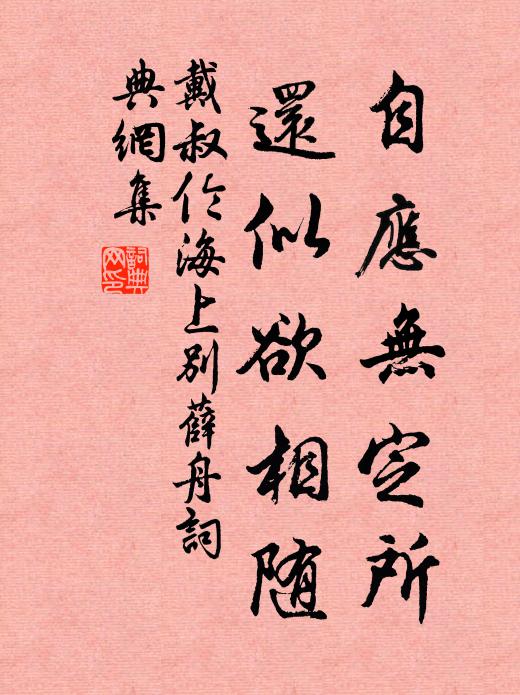 自應無定所
還似欲相隨
戴叔伦海上別薛舟詞
典網集
詞典
网印